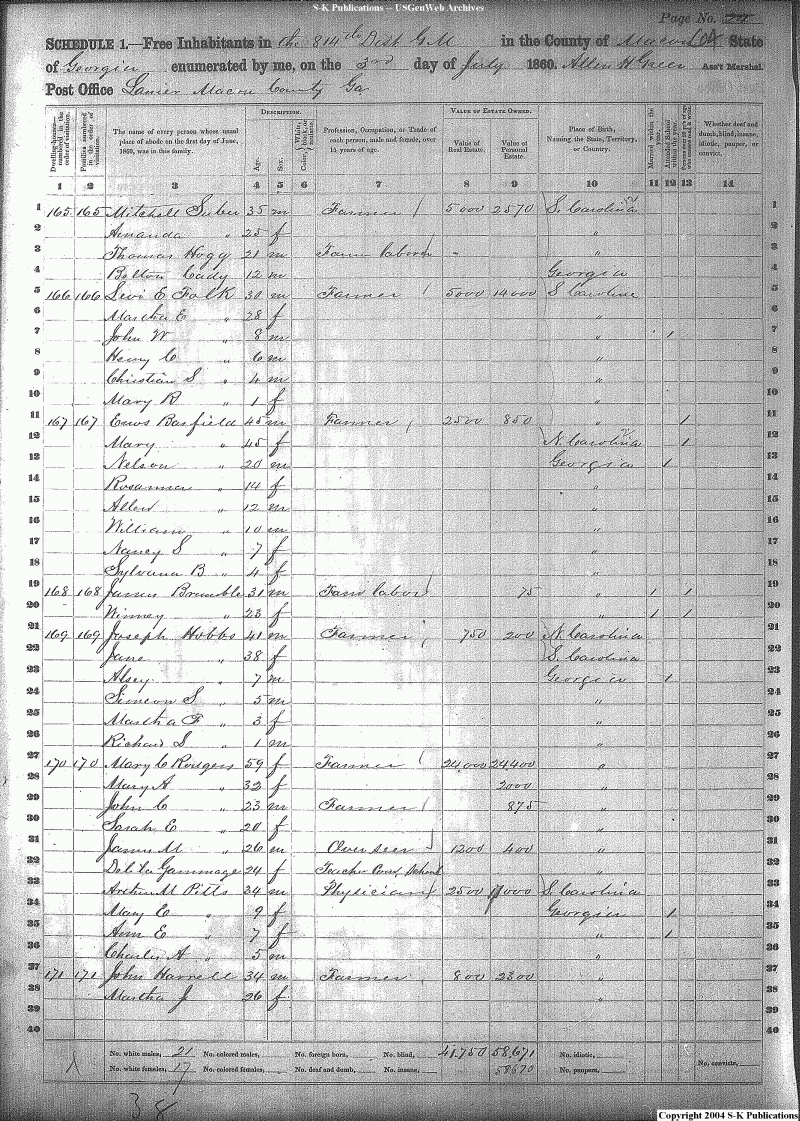 S-K Publications -- USGenWeb Archives
Page No. 24
SCHEDULE 1.—Free Inhabitants in the 814th Dist G.M in the County of Macon State
of Georgia enumerated by me, on the 3rd day of July 1860. Allen H Green Ass't Marshal.
Post Office Lanier Macon County Ga
Dwelling-houses—numbered in the order of visitation.
Families numbered in the order of visitation.
The name of every person whose usual place of abode on the first day of June, 1860, was in this family.
DESCRIPTION.
Age.
Sex.
Color, White, black, or mulatto.
Profession, Occupation, or Trade of each person, male and female, over 15 years of age.
VALUE OF ESTATE OWNED.
Value of Real Estate.
Value of Personal Estate.
Place of Birth, Naming the State, Territory, or Country.
Married within the year.
Attended School within the year.
Persons over 20 y'rs of age who cannot read & write.
Whether deaf and dumb, blind, insane, idiotic, pauper, or convict.
1 2 3 4 5 6 7 8 9 10 11 12 13 14
1 165 165 Mitchell Suber 35 m Farmer 5000 2570 S. Carolina 1
2 Amanda " 25 f " 2
3 Thomas Hogg 21 m Farm labor " 3
4 Bolton Cady 12 m Georgia 4
5 166 166 Levi E Folk 30 m Farmer 5000 14000 S Carolina 5
6 Martha E " 28 f " 6
7 John W " 8 m " 1 7
8 Henry C " 6 m " 8
9 Christian S " 4 m " 9
10 Mary R " 1 f " 10
11 167 167 Enos Basfield 45 m Farmer 2500 850 " 1 11
12 Mary " 45 f N. Carolina 1 12
13 Nelson " 20 m Georgia 1 13
14 Rosanna " 14 f " 14
15 Allen " 12 m " 15
16 William " 10 m " 16
17 Nancy S " 7 f " 17
18 Sylvana B " 4 f " 18
19 168 168 James Brumble 31 m Farm labor 75 " 1 1 19
20 Winney " 23 f " 1 1 20
21 169 169 Joseph Hobbs 41 m Farmer 750 200 N. Carolina 21
22 Jane " 38 f S. Carolina 22
23 Alsey " 7 m Georgia 1 23
24 Simeon S " 5 m " 24
25 Martha F " 3 f " 25
26 Richard S " 1 m " 26
27 170 170 Mary C Rodgers 59 f Farmer 24000 24400 " 27
28 Mary A " 32 f 2000 " 28
29 John C " 23 m Farmer 875 " 29
30 Sarah E " 20 f " 30
31 James M " 26 m Overseer 1200 400 " 31
32 Delila Gammage 24 f Teacher School " 32
33 M Pitts 34 m Physician 2500 11000 S. Carolina 33
34 Mary E " 9 f Georgia 1 34
35 Ann E " 7 f " 1 35
36 Charles A " 5 m " 36
37 171 171 John Harrell 34 m Farmer 800 2300 " 37
38 Martha J 26 f " 38
39 39
40 40
No. white males, 21 No. colored males, No. foreign born, No. blind, 41,750 58,671 No. idiotic,
No. white females, 17 No. colored females, No. deaf and dumb, No. insane, 58670 No. paupers, No. convicts,
38
Copyright 2004 S-K Publications